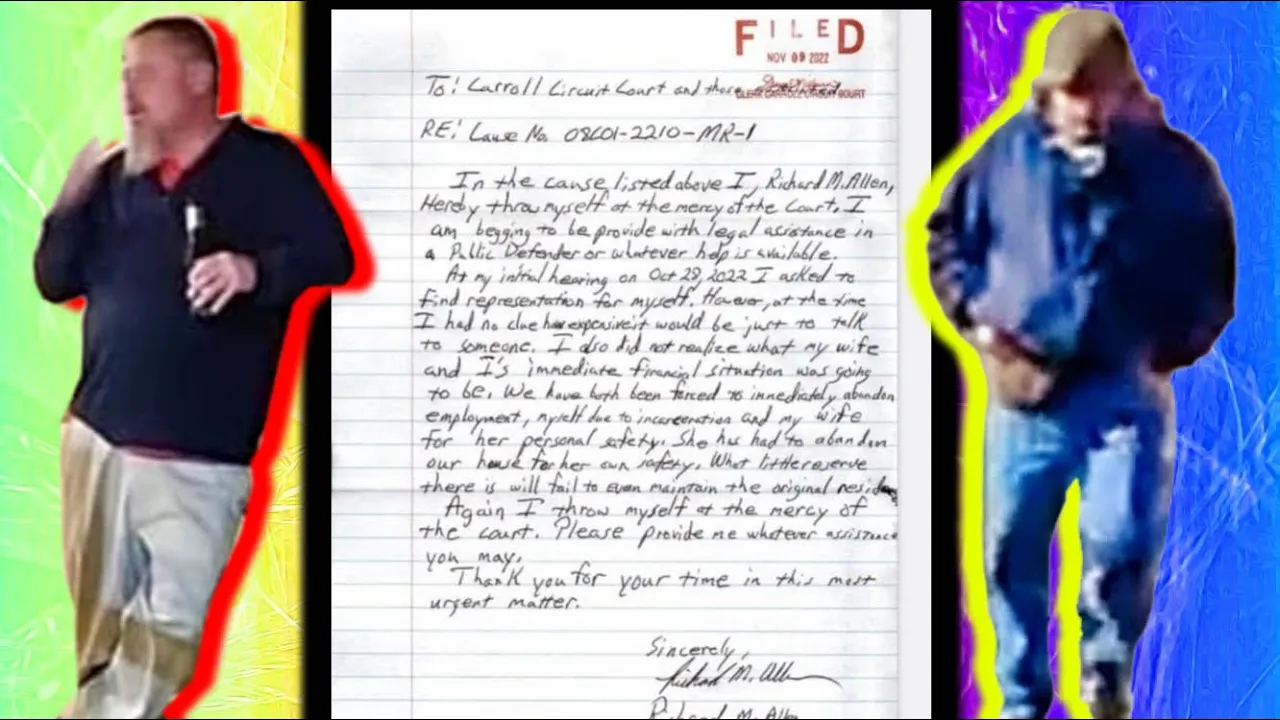 FILED
NOV 09 2022
CLERK CARROLL CIRCUIT COURT
To: Carroll Circuit Court and those
RE: Cause No. 08C01-2210-MR-1
In the cause listed above I, Richard M. Allen,
Hereby throw myself at the mercy of the Court. I
am begging to be provide with legal assistance in
a Public Defender or whatever help is available.
At my initial hearing on Oct 28, 2022 I asked to
find representation for myself. However, at the time
I had no clue how expensive it would be just to talk
to someone. I also did not realize what my wife
and I's immediate financial situation was going
to be. We have both been forced to immediately abandon
employment, myself due to incarceration and my wife
for her personal safety. She has had to abandon
our house for her own safety. What little reserve
there is will fail to even maintain the original
Again I throw myself at the mercy of
the court. Please provide me whatever assistance
you may.
Thank you for your time in this most
urgent matter.
Sincerely,
Richard M. Allen
Richard M. Allen